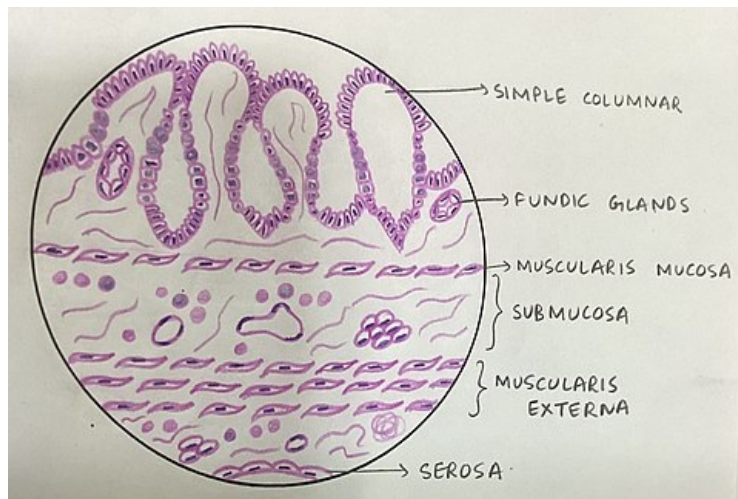 SIMPLE COLUMNAR
FUNDIC GLANDS
MUSCULARIS MUCOSA
SUBMUCOSA
MUSCULARIS
EXTERNA
SEROSA